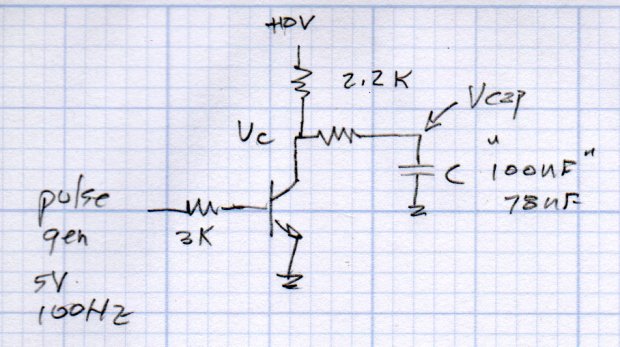 +10V
2.2K
Vcap
Vc
C "100nF"
78nF
pulse
gen
3K
5V
100HZ